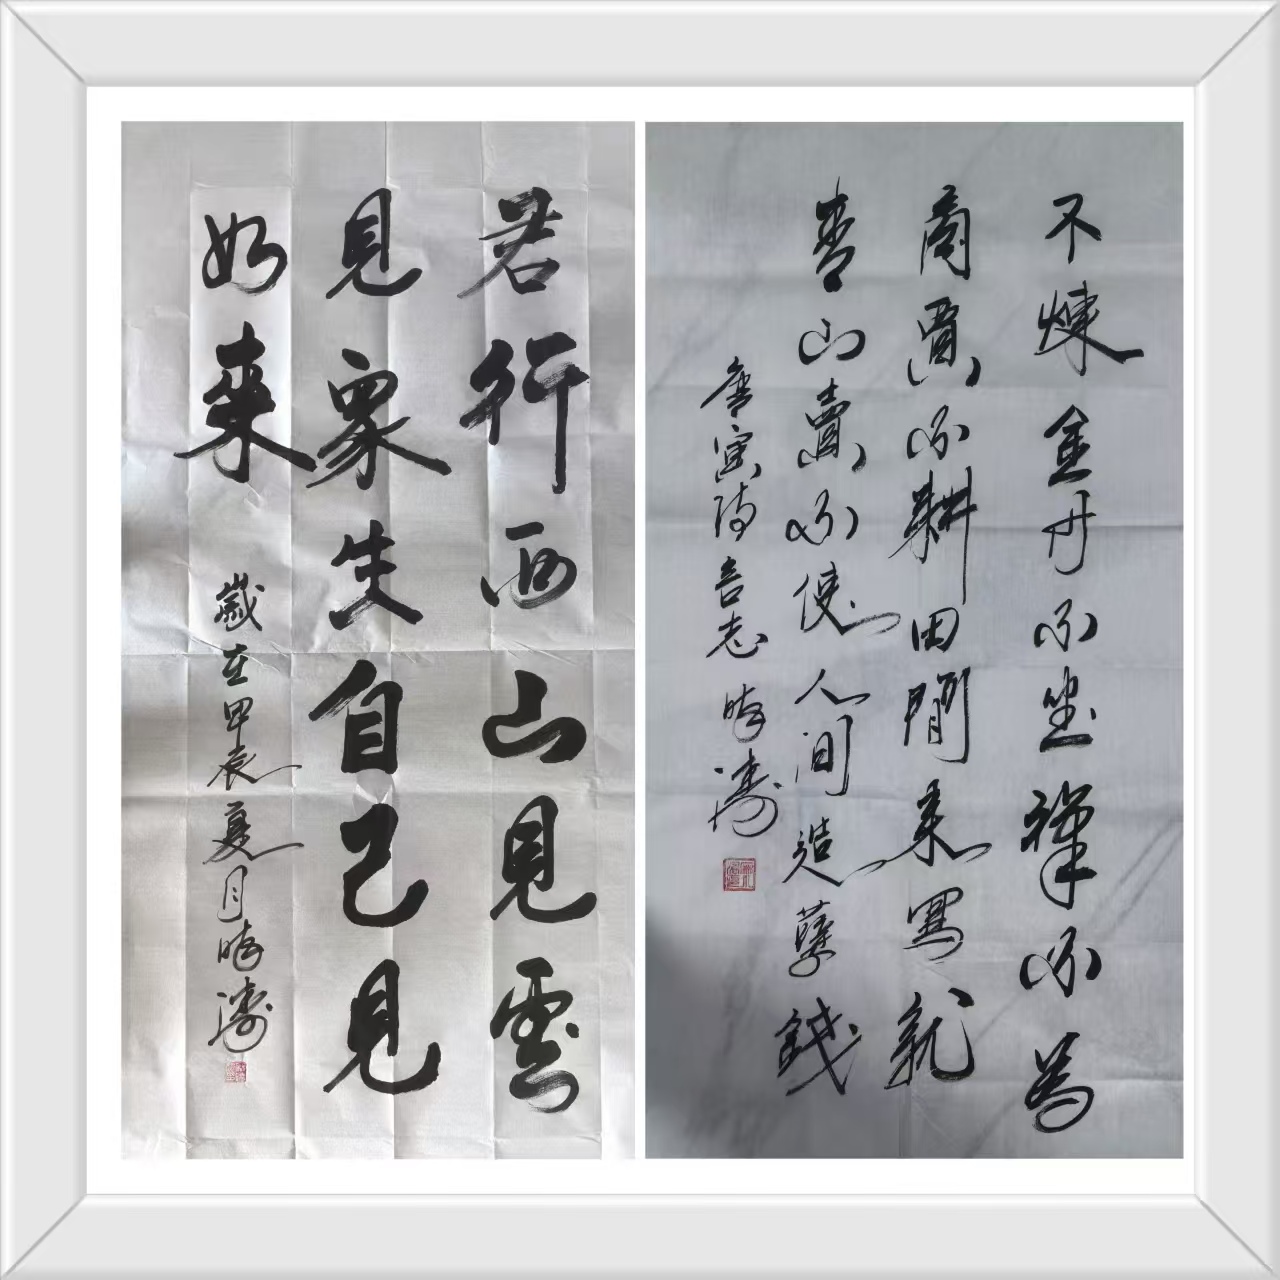 君行西山見雲
見眾生自己見
如来
歲在甲辰夏月濤
不煉金丹不坐禪不為
商賈不耕田閒来寫就
青山賣不使人间造孽錢
唐寅詩言志 濤